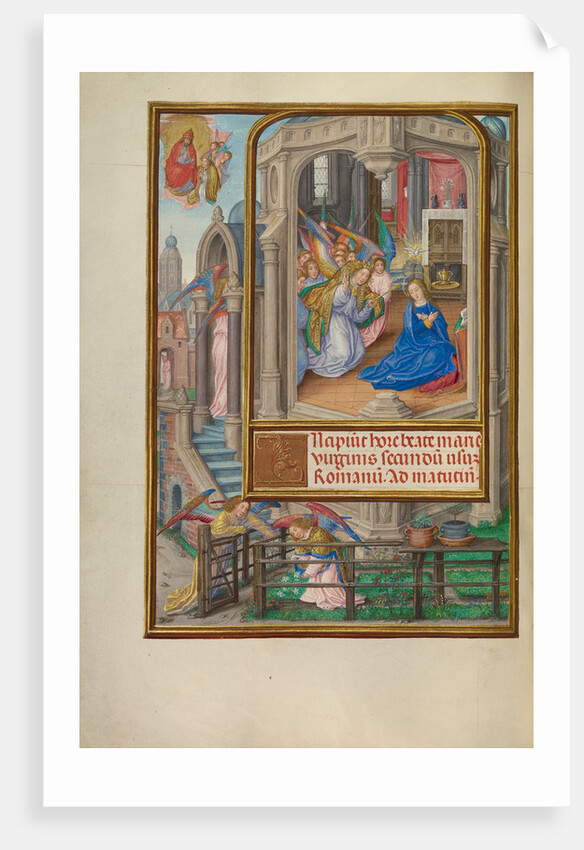 Incipiūt hore beate marie
virginis secundū usuȝ
Romanū. Ad matutinū.